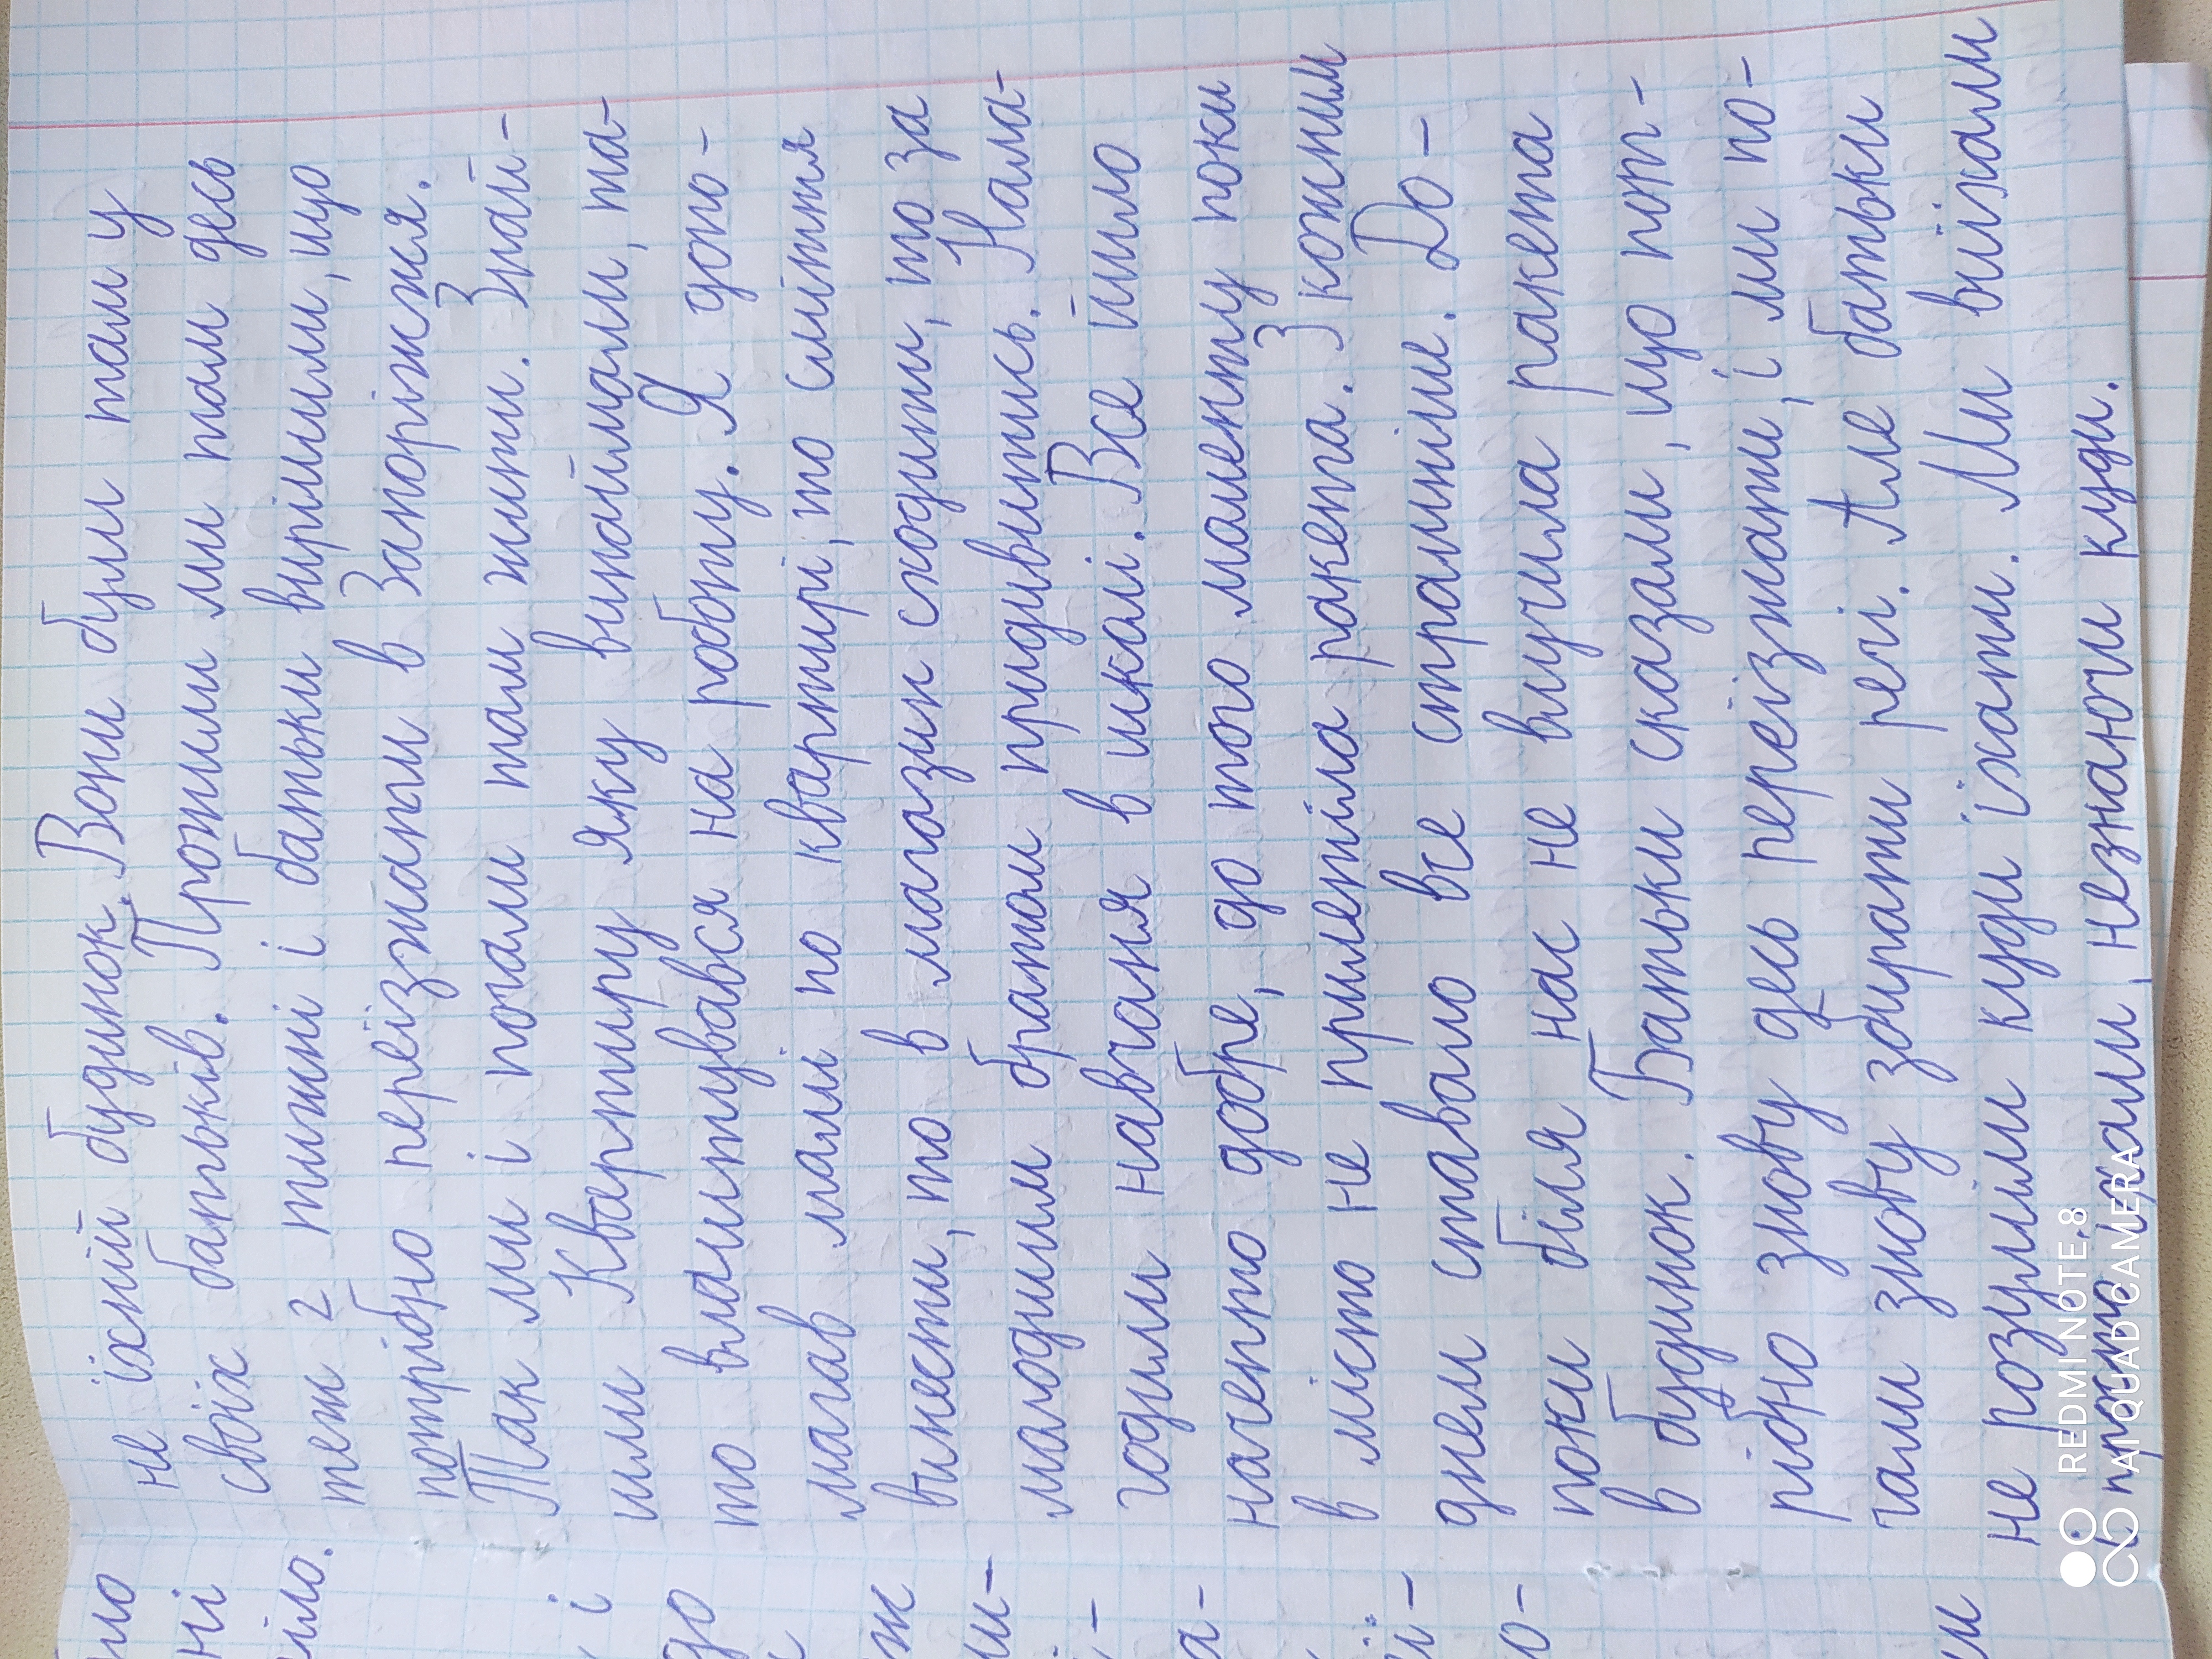 не їхній будинок. Вони були там у
своїх батьків. Прожили ми там десь
теж 2 тижні і батьки вирішили, що
потрібно переїзжати в Запоріжжя.
Так ми і почали там жити. Знай-
шли Квартиру яку винаймали, та-
то влаштувався на роботу. Я допо-
магав мамі по квартирі, то сміття
винести, то в магазин сходити, то за
молодшим братом придивитись. Нала-
годили навчаня в школі. Все йшло
начепто добре, до того моменту поки
в місто не прилетіла ракета. З кожним
днем ставало все страшніше. До-
поки біля нас не влучила ракета
в будинок. Батьки сказали, що пот-
рібно знову десь переїзжати, і ми по-
чали знову збирати речі. Але батьки
не розуміли куди їхати. Ми виїхали
і просто їхали, незнаючи куди.
REDMI NOTE 8
AI QUAD CAMERA